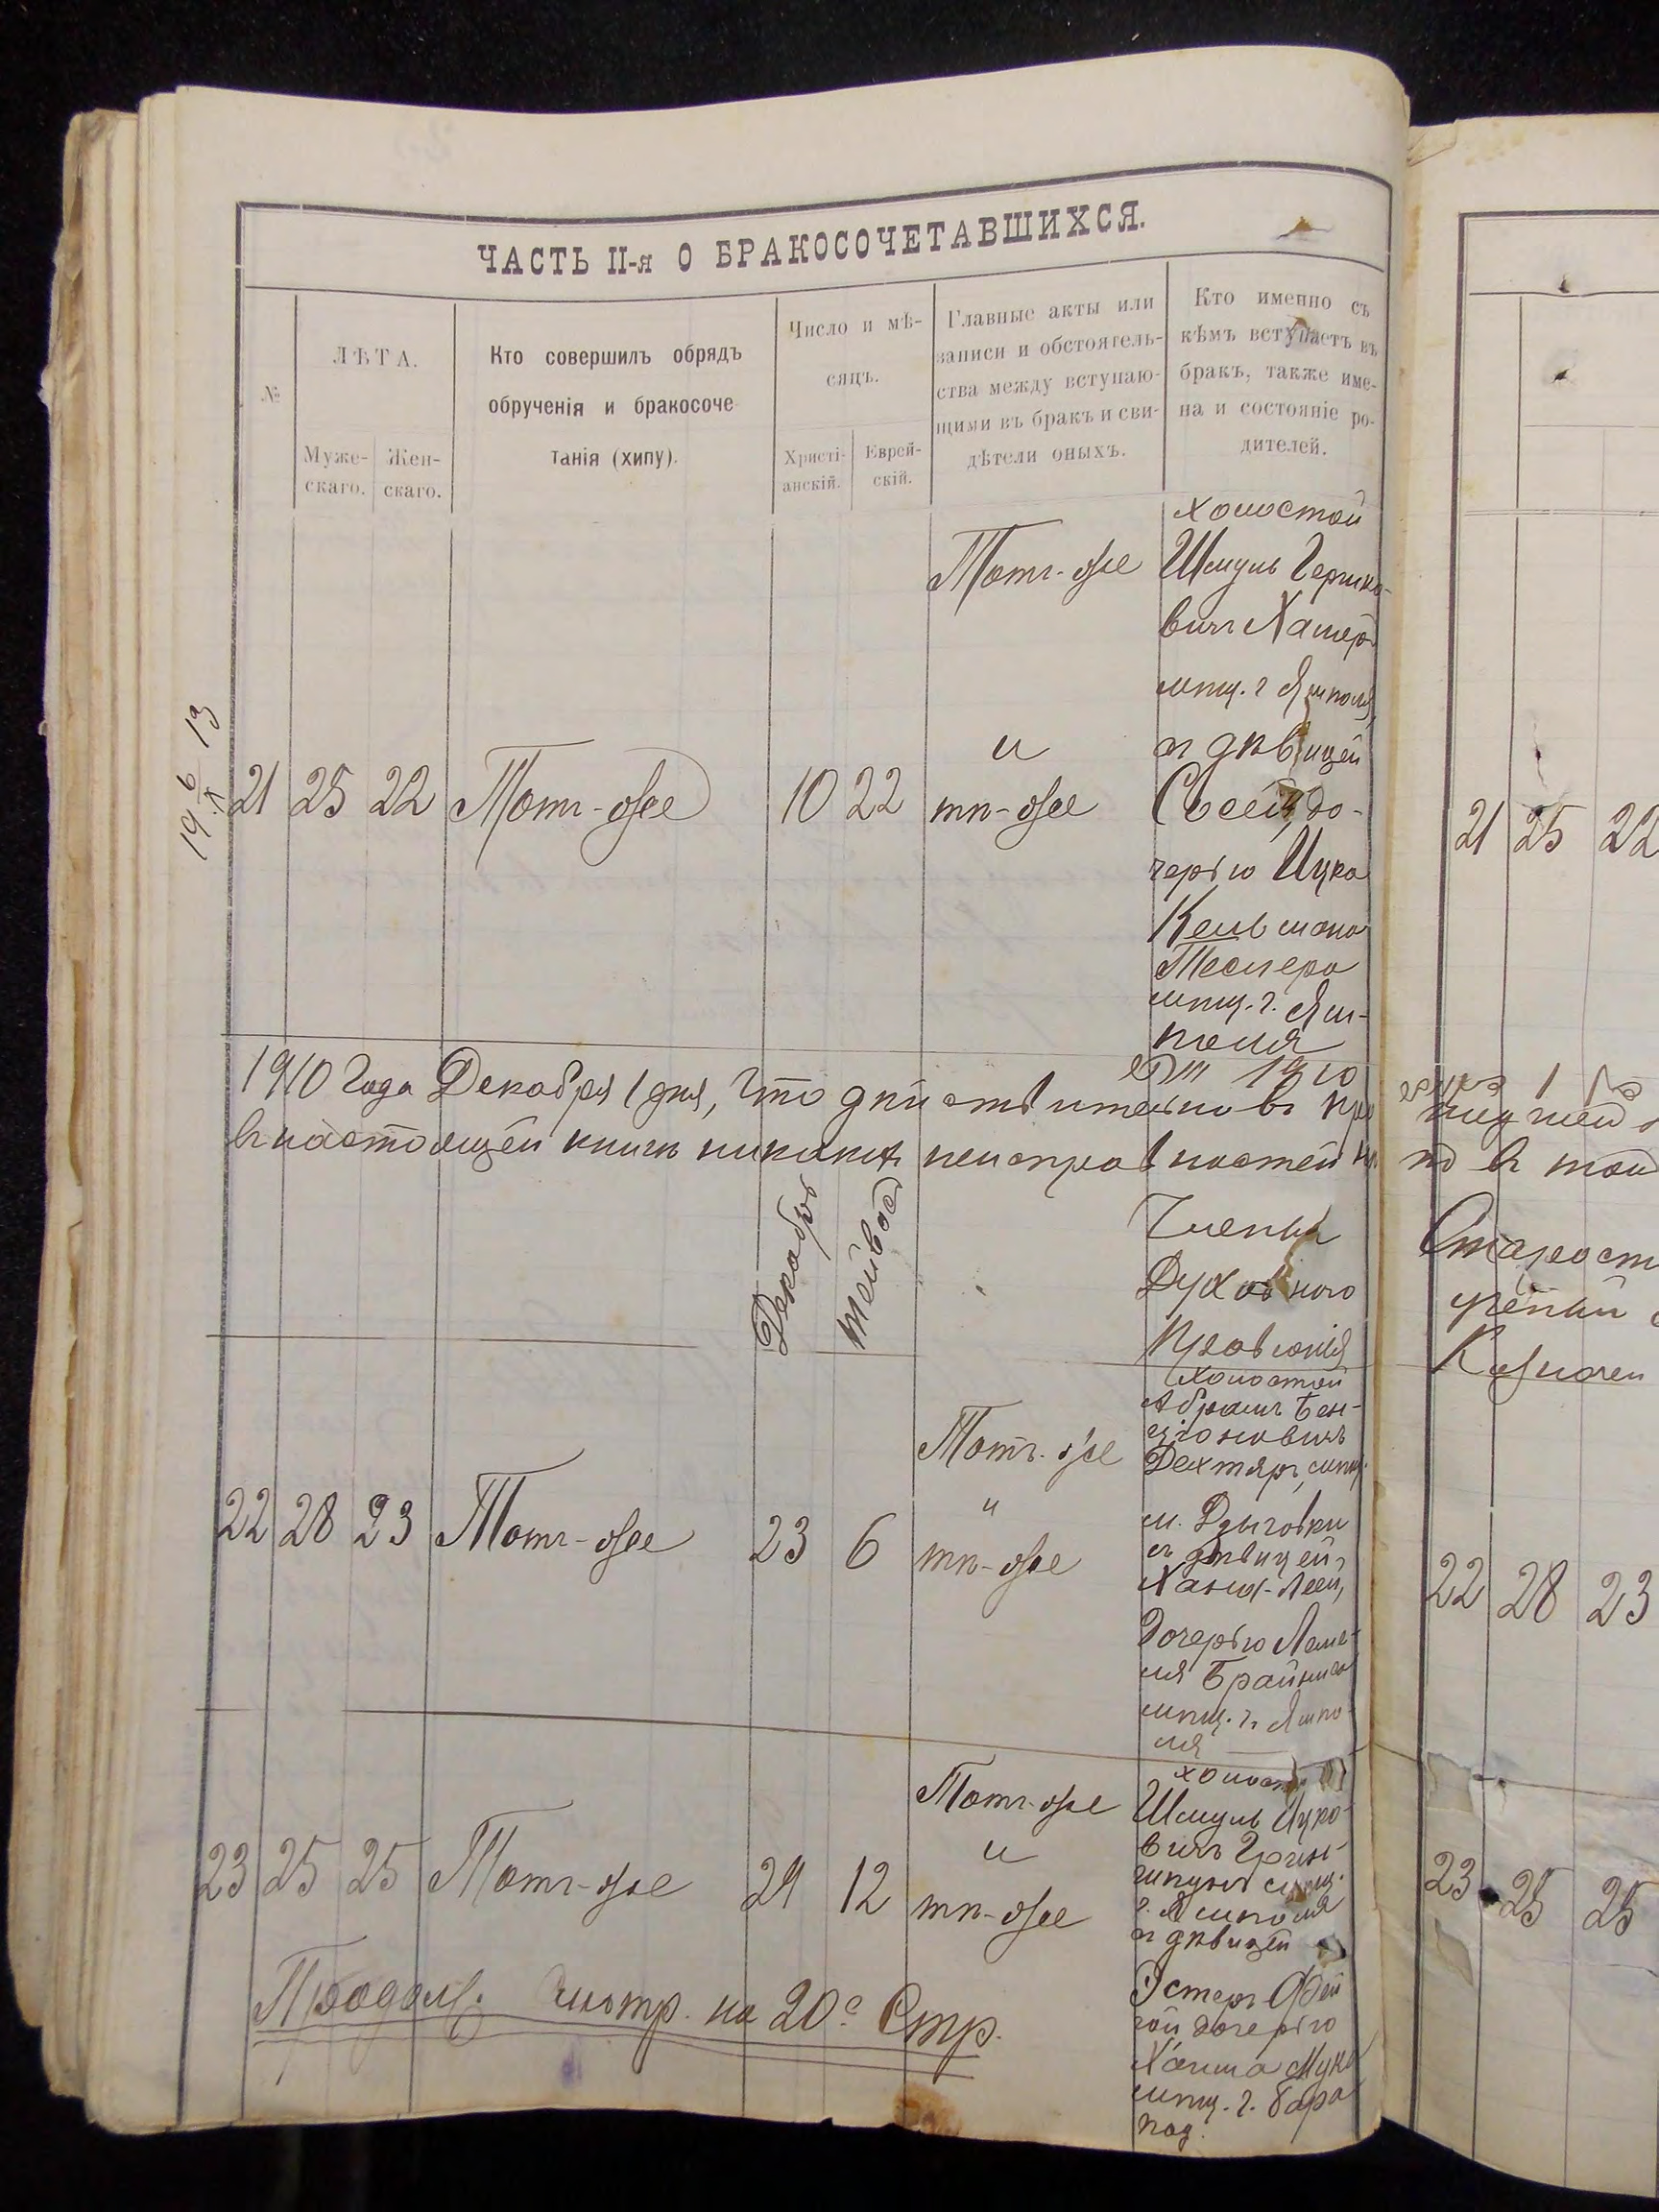 ЧАСТЬ II-я О БРАКОСОЧЕТАВШИХСЯ.
№
ЛѢТА.
Муже-
скаго.
Жен-
скаго.
Кто совершилъ обрядъ
обрученія и бракосоче-
танія (хипу).
Число и мѣ-
сяцъ.
Христі-
анскій.
Еврей-
скій.
Главные акты или
записи и обстоятель-
ства между вступаю-
щими въ бракъ и сви-
дѣтели оныхъ.
Кто именно съ
кѣмъ вступаетъ въ
бракъ, также име-
на и состояніе ро-
дителей.
21 25 22 Тотъ-же 10 22
Тотъ-же
и
тѣ-же
холостой
Шмуль Гершко-
вичъ
мѣщ. г Ямполя,
съ дѣвицей
Сосей, до-
черью Ицка
Кельмана
Теслера
мѣщ. г. Ям-
поля
1910 Года Декабря 1 дня, что дѣйствительно въ
въ настоящей книгѣ никакихъ неисправностей
Декабрь
Тейвас
Члены
Духовного
Правленія
22 28 23 Тотъ-же 23 6
Тотъ-же
и
тѣ-же
Холостой
Абрамъ Бен-
ціоновичъ
Дехтяръ, мѣщ.
м. Дзыговки
съ дѣвицей,
Ханой-Леей,
Дочерью Леме-
ля
мѣщ. г. Ямпо-
ля
23 25 25 Тотъ-же 29 12
Тотъ-же
и
тѣ-же
холост
Шмуль Ицко-
вичъ Грин-
шпунъ мѣщ.
г. Ямполя
съ дѣвицей
Эстеръ
дочерью
Хаима
мѣщ. г. Бара
под.
Продолж. смотр. на 20й Стр.
21 25 22
въ той
Старост
ученый
Казначей
22 28 23
23 25 25